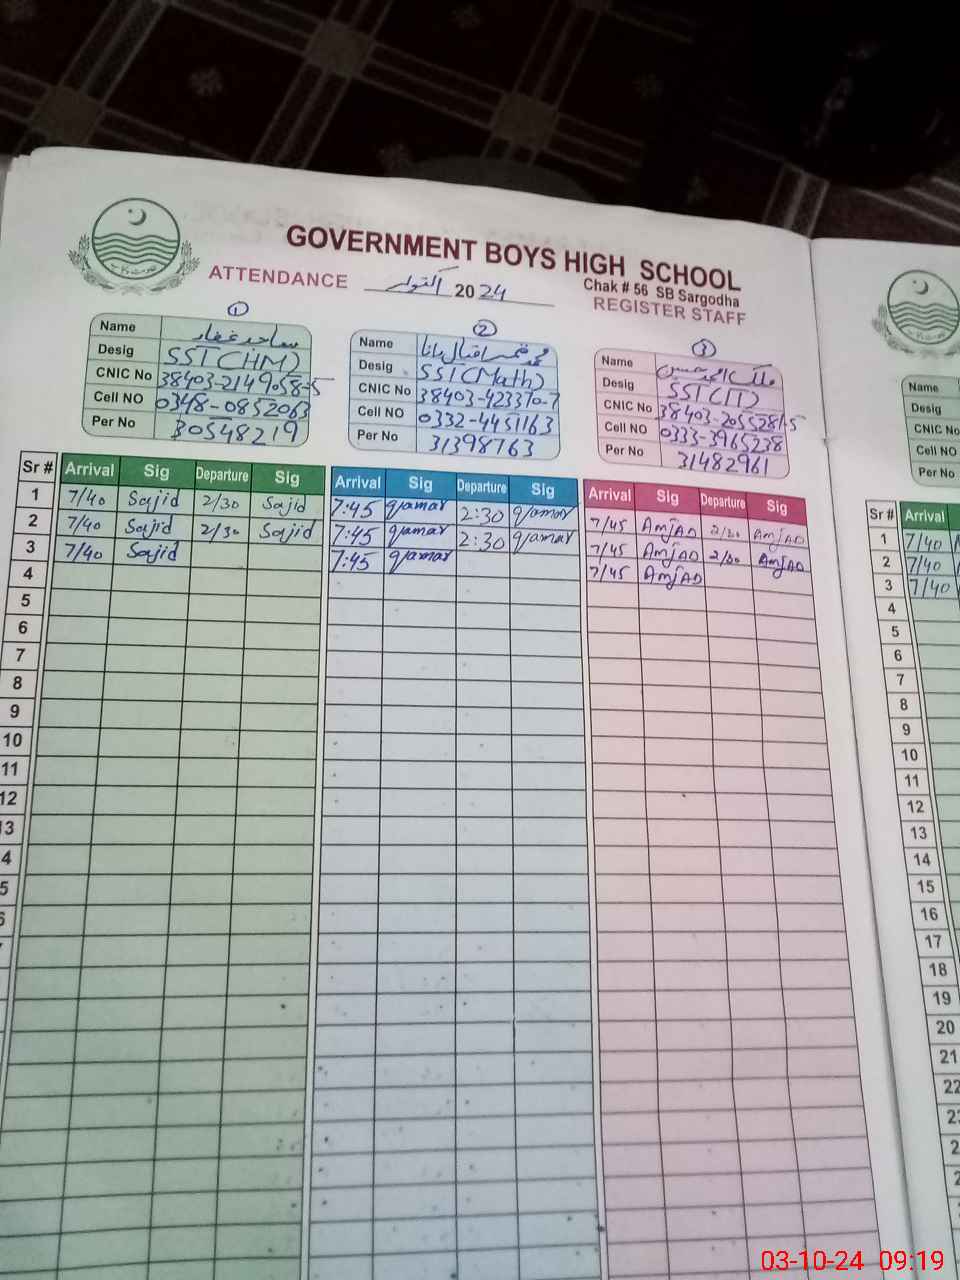 GOVERNMENT BOYS HIGH SCHOOL
ATTENDANCE اکتوبر 2024
Chak # 56 SB Sargodha
REGISTER STAFF
1
Name ساجد غفار
Desig SST(HM)
CNIC No 38403-2149058-5
Cell NO 0348-0852063
Per No 30548219
2
Name محمد قمر اقبال رانا
Desig SST(Math)
CNIC No 38403-423370-7
Cell NO 0332-4451163
Per No 31398763
3
Name ملک
Desig SST(IT)
CNIC No 38403-2055281-5
Cell NO 0333-3965238
Per No 31482961
Name
Desig
CNIC No
Cell NO
Per No
Sr # Arrival Sig Departure Sig Arrival Sig Departure Sig Arrival Sig Departure Sig Sr # Arrival
1 7/40 Sajid 2/30 Sajid 7:45 qamar 2:30 qamar 7/45 AmjAD 2/30 AmjAD 1 7/40
2 7/40 Sajid 2/30 Sajid 7:45 qamar 2:30 qamar 7/45 AmjAD 2/30 AmjAD 2 7/40
3 7/40 Sajid 7:45 qamar 7/45 AmjAD 3 7/40
4 4
5 5
6 6
7 7
8 8
9 9
10 10
11 11
12 12
13 13
4 14
5 15
16
17
18
19
20
21
22
03-10-24 09:19